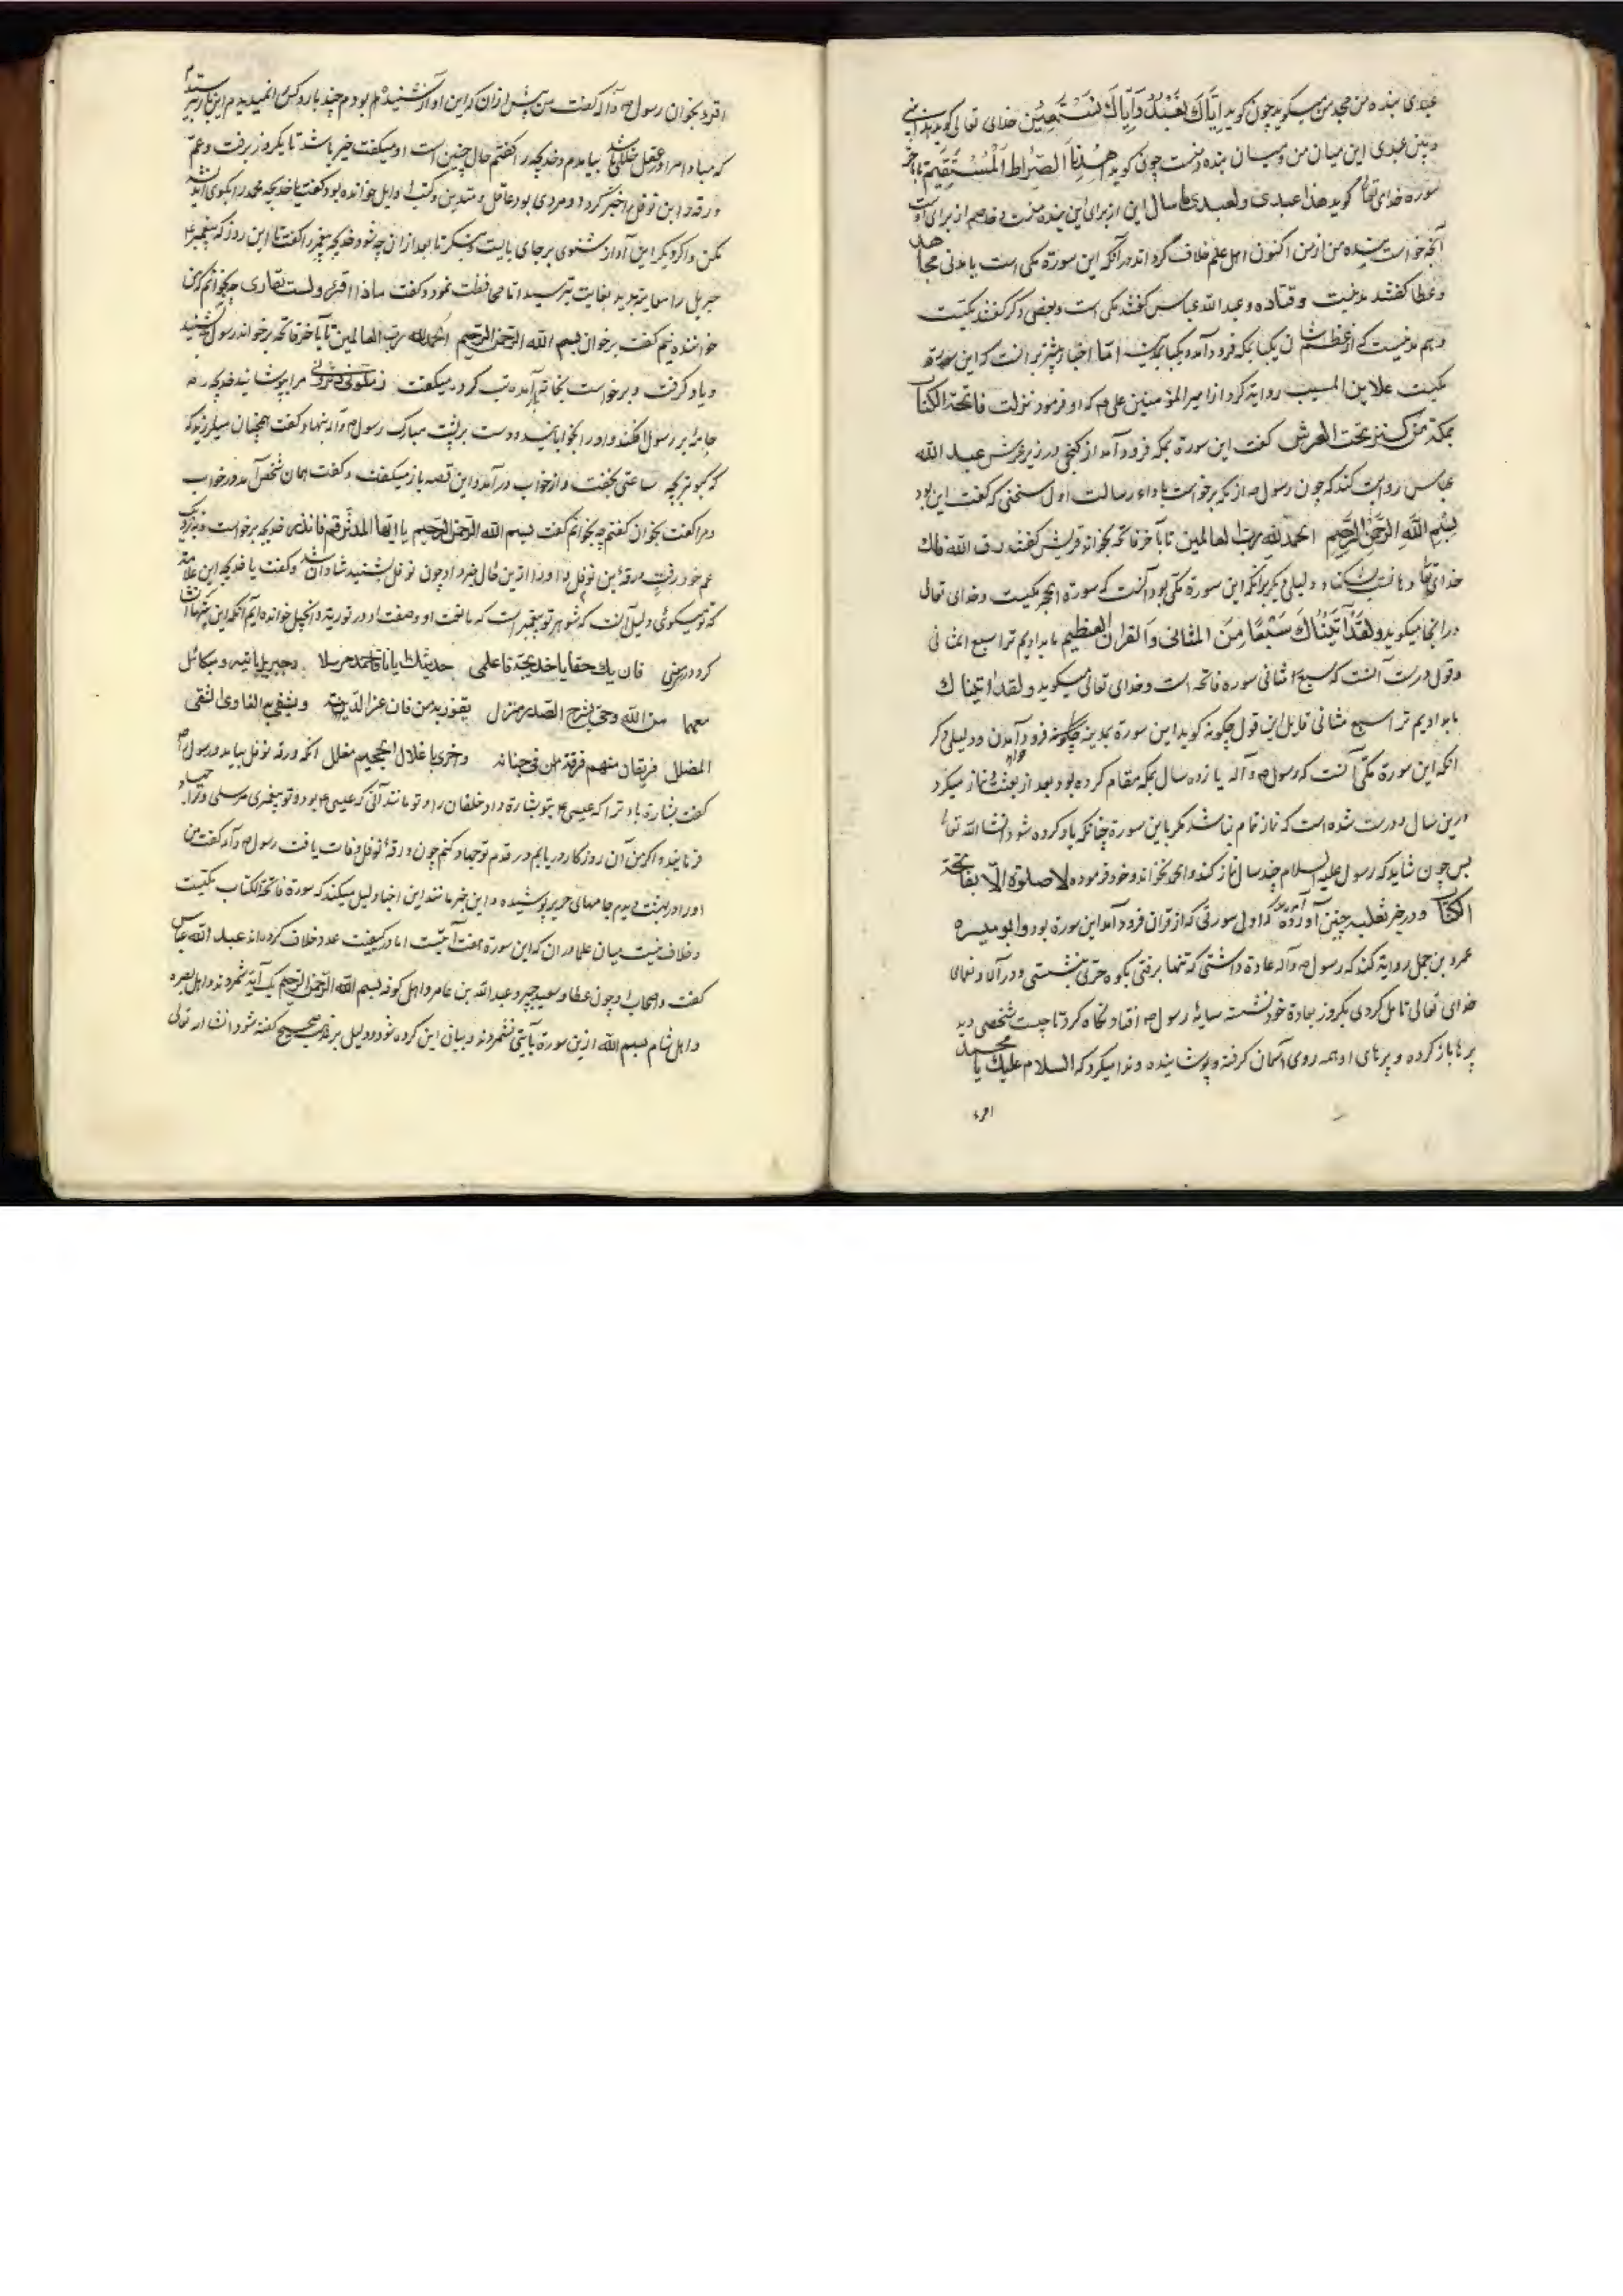 عبدی بنده من مجد من میکوید چون کوید اِیَّاکَ نَعْبُدُ وَاِیَّاکَ نَسْتَعِیْن خدای تعالی کوید بینی
و بین عبدی این میان من و میان بنده منست چون کوید اهْدِنَا الصِّرَاطَ الْمُسْتَقِیْم تا بآخر
سوره خدای تعالی کوید هذا عبدی ولعبدی ما سال این از برای این بنده منست و خاصم از برای اوست
آنچه خواست بنده من از من اکنون اهل علم خلاف کرده اند در آنکه این سورة مکی است یا مدنی مجاهد
و عطا کفتند مدنیست و قتاده و عبد الله عباس کفتند مکی است و بعضی دکر کفتند مکیست
و هم مدنیست که از عظم شان یکبار بمکه فرود آمد و یکبار بمدینه امّا اخبار بیشتر بر انست که این سورة
مکیست علا بن المسیب روایة کرد از امیر المؤمنین علی م که او فرمود نزلت فاتحة الکتاب
بمکة من کنز تحت العرش کفت این سورة بمکه فرود آمد از کنجی در زیر عرش عبد الله
عباس روایت کند که چون رسول م از مکه برخواست باداء رسالت اول سخنی که کفت این بود
بِسْمِ اللّٰهِ الرَّحْمٰنِ الرَّحِیْمِ الحمد لله رب العالمین تا بآخر فاتحه بخواند قریش کفتند دق الله فاک
خدای تعالی دهانت بشکناد و دلیلی دیکر برآنکه این سورة مکّی بود آنست که سورة الحجر مکیست و خدای تعالی
در انجا میکوید وَلَقَدْ آتَیْنَاکَ سَبْعًا مِنَ المثَانی وَالقرآن العظیم ما بدادیم ترا سبع المثانی
و قول درست آنست که سبع المثانی سوره فاتحه است و خدای تعالی میکوید و لقد آتیناک
ما بدادیم ترا سبع مثانی قایل این قول چکونه کوید این سورة بمدینه خواهد فرود آمدن و دلیلی دکر
آنکه این سورة مکّی آنست که رسول م و آله یازده سال بمکه مقام کرده بود بعد از بعثت و نماز میکرد
درین سال و درست شده است که نماز تمام نباشد مکر باین سورة چنانکه یاد کرده شود انشا الله تعالی
پس چون شاید که رسول علیه السلام چند سال نماز کند و الحمد نخواند و خود فرموده لا صلوة الّا بفاتحة
الکتاب و در خبر ثعلبه چنین آورده که اول سورتی که از قران فرود آمد این سورة بود و ابو میسره
عمرو بن جمل روایة کند که رسول م و آله عادة داشتی که تنها برفتی بکوه حرّی بنشستی و در آلا و نعمای
خدای تعالی تامل کردی یکروز بعادة خود نشسته سایهٔ رسول م افتاد نکاه کرد تا چیست شخصی دید
پرها باز کرده و پرهای او همه روی آسمان کرفته و پوشانیده و ندا میکرد که السلام علیک یا محمد
اقرء
اقرء بخوان رسول م و آله کفت من پیش ازان که این آواز شنیده بودم چند بار و کس را نمیدیدم این بار بترسیدم
که مبادا مرا در عقل خللی باشد بیامدم و خدیجه را کفتم حال چنین است او میکفت خیر باشد تا یکروز برفت و عم
ورقه ابن نوفل را خبر کرد و او مردی بود عاقل و متدین و کتب اوایل خوانده بود کفت یا خدیجه محمد را بکوی اندیشه
مکن و اکر دیکر این آواز شنوی بر جای بایست و بنکر تا بعد ازان چه شود خدیجه پیغمبر را کفت تا این روز که پیغمبر
جبریل را معاینه بدید بغایت بترسید اما محافظت نمود و کفت ماذا اقرئ و لست بقاری چه خوانم که من
خواننده نیم کفت برخوان بسم الله الرحمن الرحیم الحمد لله رب العالمین تا بآخر فاتحه برخواند رسول بشنید
و یاد کرفت و برخواست بخانه آمده تب کرد و میکفت زملونی دثرونی مرا بپوشانید خدیجه
جامهٔ بر رسول افکند و او را بخوابانید و دست بر پشت مبارک رسول م و آله نهاد و کفت همچنان میلرزید که
که کبوتر بچه ساعتی بخفت و از خواب درآمد و این قصه باز میکفت و کفت همان شخص آمد در خواب
و مرا کفت بخوان کفتم چه بخوانم کفت بسم الله الرحمن الرحیم یا ایها المدثر قم فانذر خدیجه برخواست و بنزدیک
عم خود رفت ورقه بن نوفل و او را ازین حال خبر داد چون نوفل بشنید شادان شد و کفت یا خدیجه این علامة
که تو میکوئی دلیل آنست که شوهر تو پیغمبر است که ما نعت او و صفت او در توریة و انجیل خوانده ایم آنکه این بیتها انشا
کرد فان یک حقا یا خدیجة فاعلمی حدیثک ایانا فاحمد مرسلا و جبریل یاتیه و میکائل
معهما من الله وحی یشرح الصدر منزل یفوز به من فاز عزا لدینه و یشقی به الغاوی الشقی
المضلل فریقان منهم فرقة من فی جنانه و اخری باغلال الجحیم مغلل آنکه ورقه نوفل بیامد و رسول را
کفت بشارة باد ترا که عیسی م بتو بشارة داد خلقان را و تو مانند آنی که عیسی م بود و تو پیغمبری مرسلی و ترا جهاد
فرمایند و اکر من آن روزکار دریابم در قدم تو جهاد کنم چون ورقهٔ نوفل وفات یافت رسول م و آله کفت من
او را در بهشت دیدم جامهای حریر پوشیده و این خبر مانند این اخبار دلیل میکند که سورة فاتحة الکتاب مکیست
و خلاف نیست میان علما در ان که این سورة هفت آیتست اما در کیفیت عدد خلاف کرده اند عبد الله عباس
کفت و اصحاب او چون عطا و سعید جبیر و عبد الله بن عامر و اهل کوفه بسم الله الرحمن الرحیم یک آیة شمردند و اهل بصره
و اهل شام بسم الله ازین سورة بآیتی نشمردند و بیان این کرده شود و دلیل بر مذهب صحیح کفته شود انشا الله تعالی